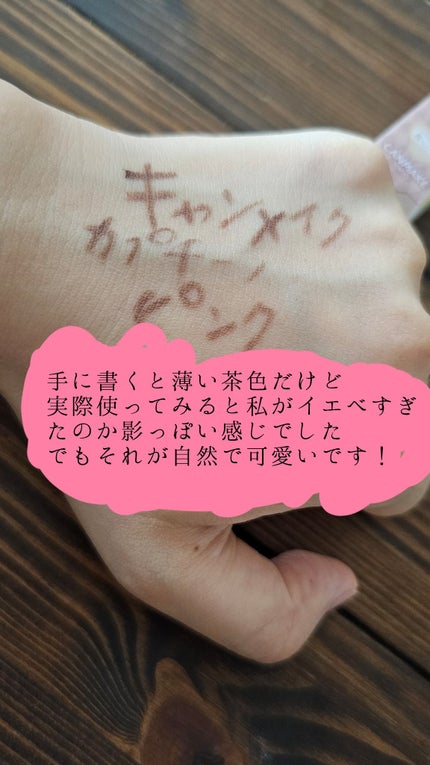 キャンメイク
カプチーノ
ピンク
手に書くと薄い茶色だけど
実際使ってみると私がイエベすぎ
たのか影っぽい感じでした
でもそれが自然で可愛いです！
CANMAKE